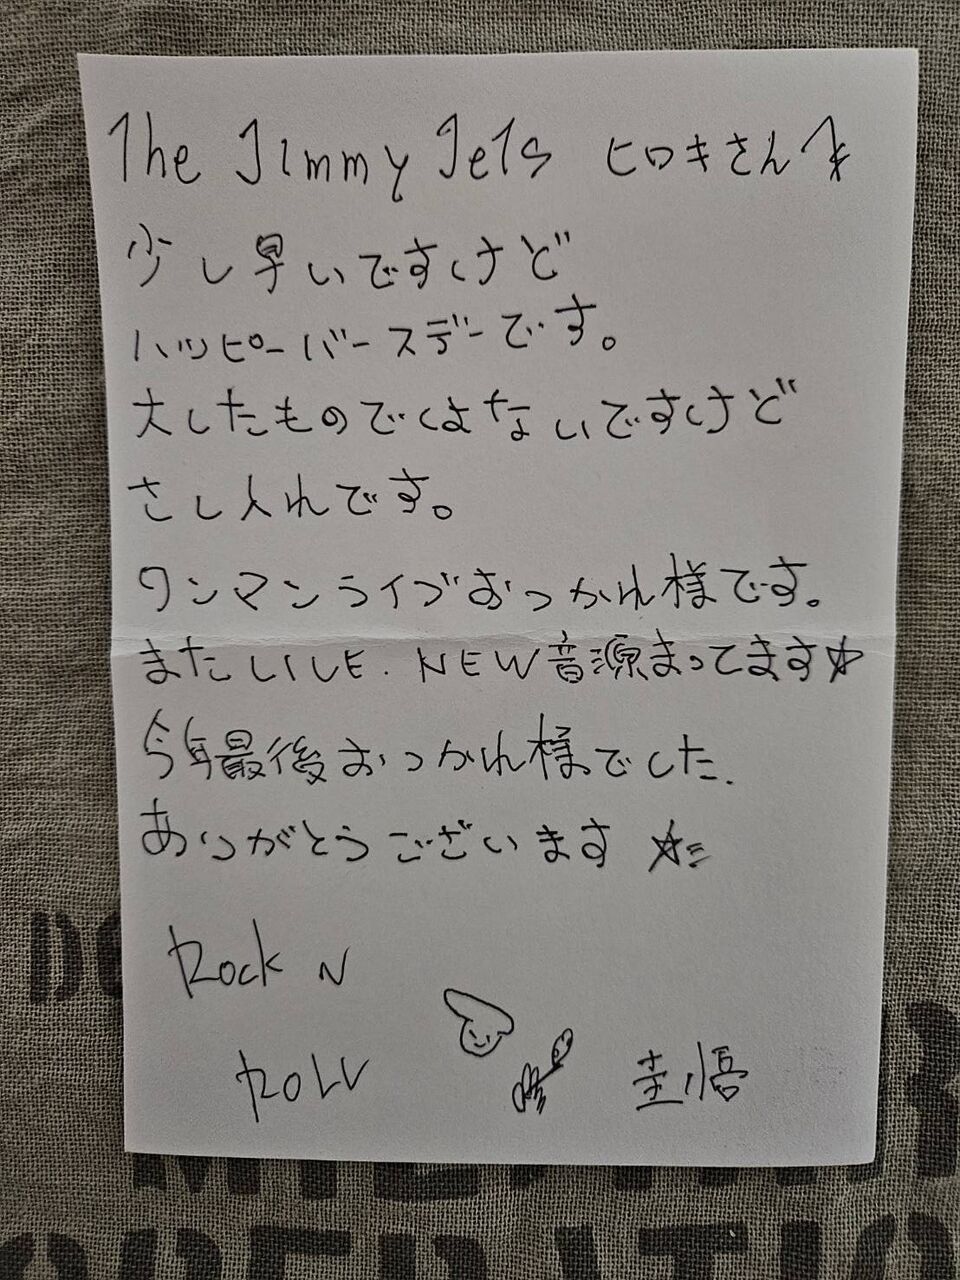 The Jimmy Jets ヒロキさんへ
少し早いですけど
ハッピーバースデーです。
大したものではないですけど
さし入れです。
ワンマンライブおつかれ様です。
またLIVE. NEW音源まってます☆
今年最後おつかれ様でした.
ありがとうございます ☆=
Rock N
Roll
圭悟